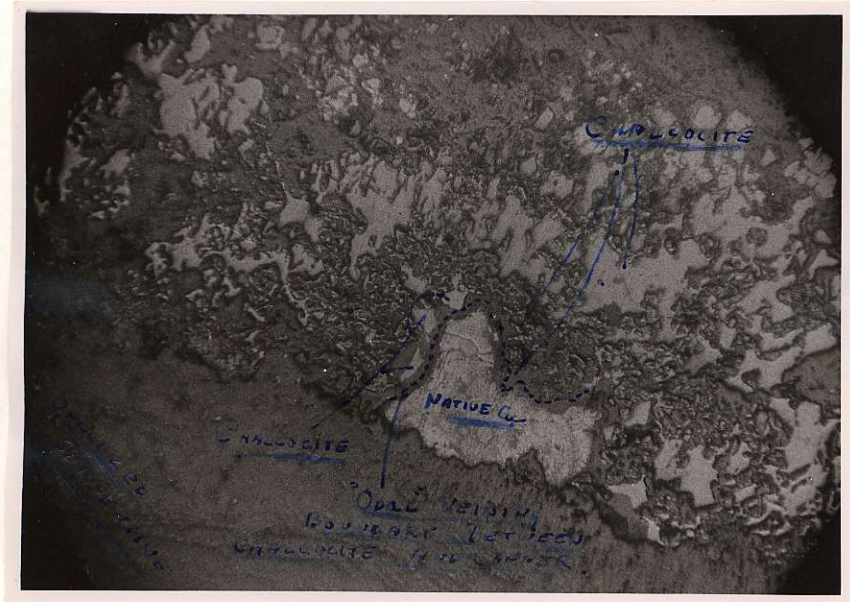 CHALCOCITE
NATIVE Cu
CHALCOCITE
VEINING
BOUNDARY BETWEEN
CHALCOCITE AND COPPER